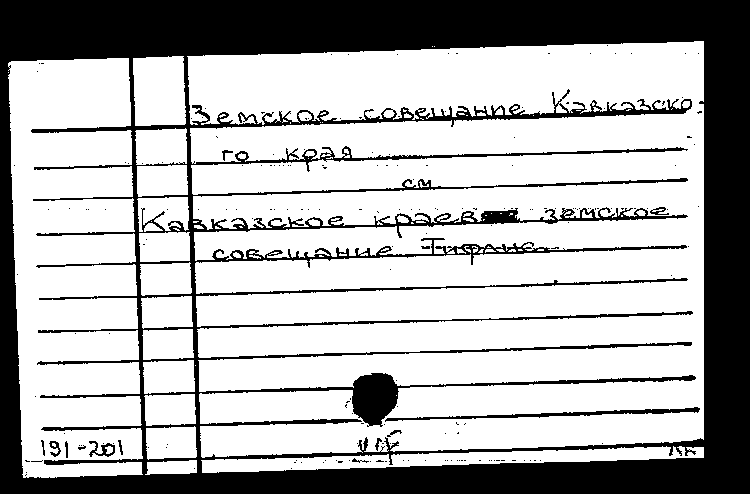 Земское совещание Кавказско-
го края
см
Кавказское краев земское
совещание Тифлис
191-201